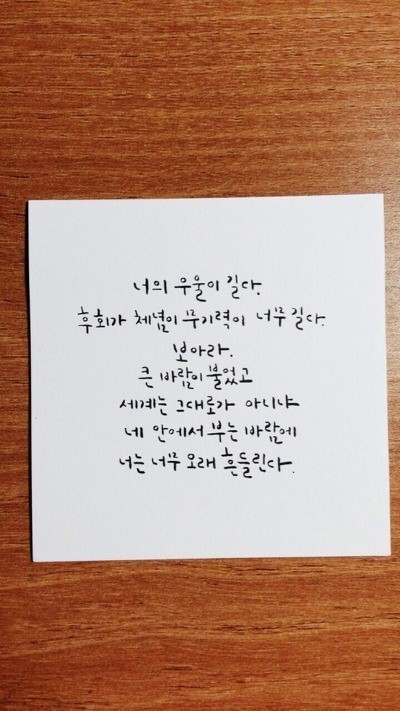 너의 우울이 길다.
후회가 체념이 무기력이 너무 길다.
보아라.
큰 바람이 불었고
세계는 그대로가 아니냐
네 안에서 부는 바람에
너는 너무 오래 흔들린다.